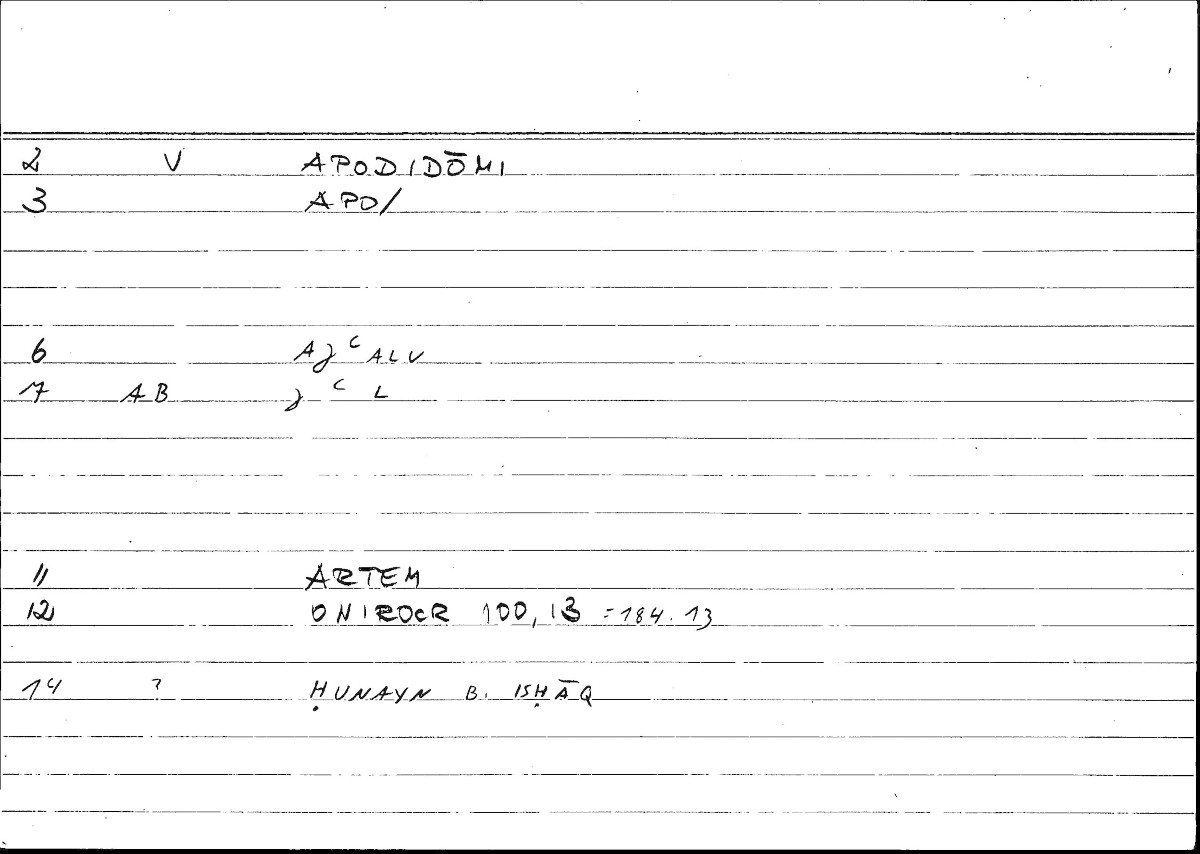 2 V APODIDŌMI
3 APO/
6 AJ ᶜ ALU
7 AB J ᶜ L
11 ARTEM
12 ONIROCR 100,13 =184.13
14 ? ḤUNAYN B. ISḤĀQ